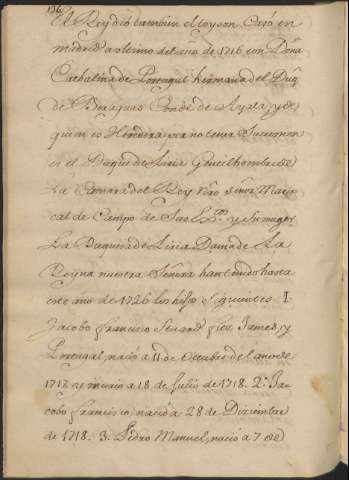 136
El Rey dio tambien el toyson Casó en
Madrid a ultimo del año de 1716 con Doña
Cathalina de Portugal hermana del Duq
de Beraguas Conde de Ayala y de
quien es Heredera por no tener Sucesion
en el Duque de Liria Gentilhombre de
La Camara del Rey nro Señor Maris
cal de Campo de Sus y Su muger
La Duquesa de Liria Dama de La
Reyna nuestra Señora han tenido hasta
este año de 1726 los hijos Siguientes I
Jacobo Francisco Stuard Fitz James y
Portugal, nació a 11 de Octubre del año de
1717 y murio a 18 de Julio de 1718. 2. Ja
cobo Francisco, nació a 28 de Diziembre
de 1718. 3. Pedro Manuel, nació a 7 de